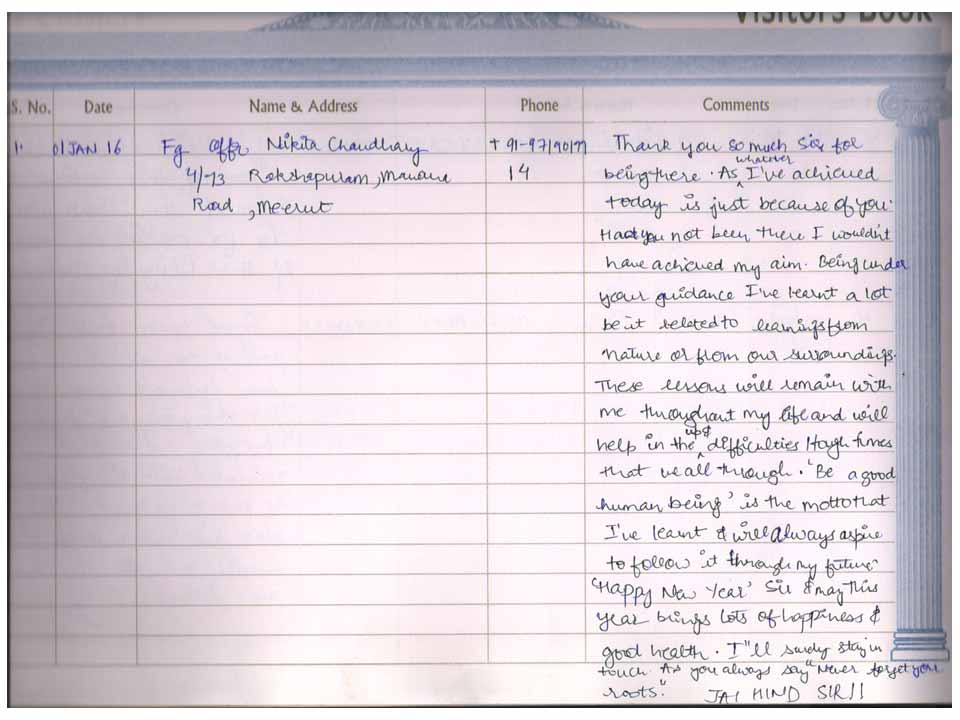 VISITORS BOOK
S. No. Date Name & Address Phone Comments
1. 01 JAN 16 Fg offr Nikita Chaudhary + 91-97190177 Thank you so much Sir for
4/73 Rakshapuram, Mawana 14 being there. As whatever I've achieved
Road, Meerut today is just because of you.
Had you not been there I wouldn't
have achieved my aim. Being under
your guidance I've learnt a lot
be it related to learnings from
nature or from our surroundings.
These lessons will remain with
me throughout my life and will
help in the ups & difficulties / tough times
that we all through. 'Be a good
human being' is the motto that
I've learnt & will always aspire
to follow it through my future.
'Happy New Year' Sir & may this
year brings lots of happiness &
good health. I''ll surely stay in
touch. As you always say "Never forget you
roots." JAI HIND SIR!!